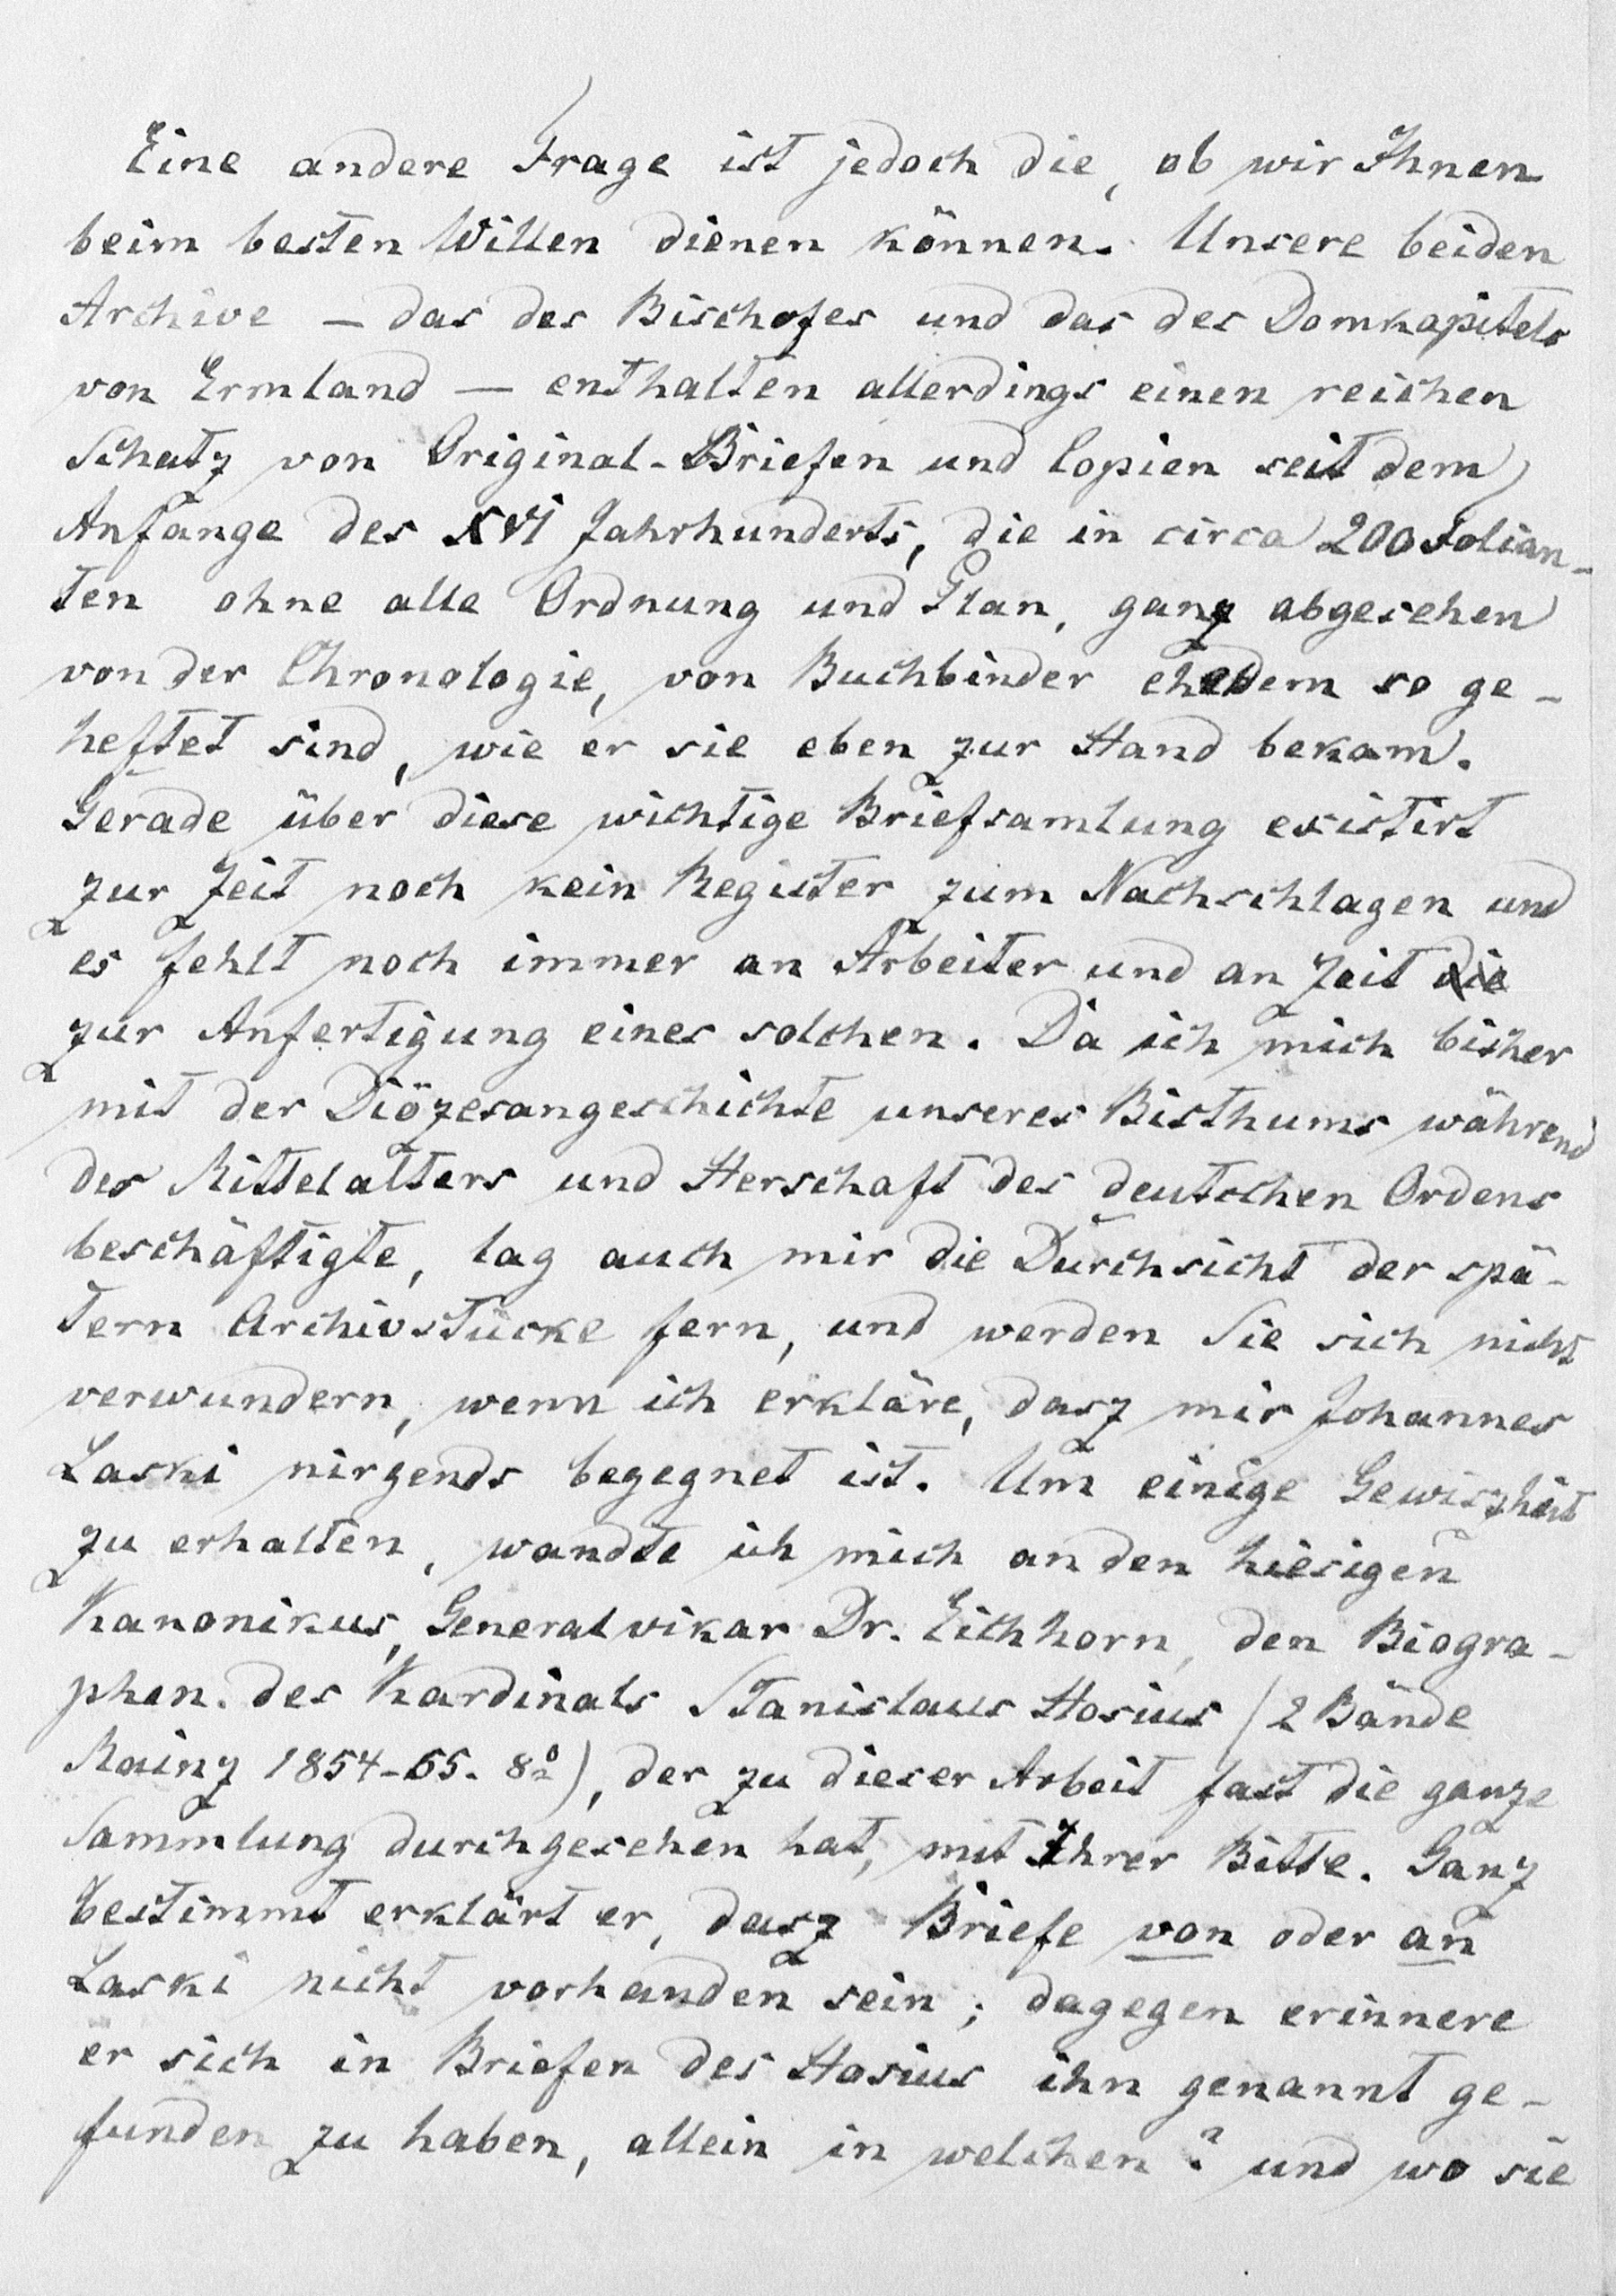 Eine andere Frage ist jedoch die, ob wir Ihnen
beim besten Willen dienen können. Unsere beiden
Archive — das des Bischofes und das des Domkapitels
von Ermland — enthalten allerdings einen reichen
Schatz von Original-Briefen und Copien seit dem
Anfange des XVI Jahrhunderts, die in circa 200 Folian-
ten ohne alle Ordnung und Plan, ganz abgesehen
von der Chronologie, von Buchbinder ehedem so ge-
heftet sind, wie er sie eben zur Hand bekam.
Gerade über diese wichtige Briefsamlung existirt
zur Zeit noch kein Register zum Nachschlagen und
es fehlt noch immer an Arbeiter und an Zeit die
zur Anfertigung eines solchen. Da ich mich bisher
mit der Diözesangeschichte unseres Bisthums während
des Mittelalters und Herschaft des deutschen Ordens
beschäftigte, lag auch mir die Durchsicht der spä-
tern Archivstücke fern, und werden Sie sich nicht
verwundern, wenn ich erkläre, dasz mir Johannes
Laski nirgends begegnet ist. Um einige Gewiszheit
zu erhalten, wandte ich mich an den hiesigen
Kanonikus, Generalvikar Dr. Eichhorn, den Biogra-
phen. des Kardinals Stanislaus Hosius (2 Bände
Mainz 1854-55. 8º), der zu dieser Arbeit fast die ganze
Sammlung durchgesehen hat, mit Ihrer Bitte. Ganz
bestimmt erklärt er, dasz Briefe von oder an
Laski nicht vorhanden sein; dagegen erinnere
er sich in Briefen des Hosius ihn genannt ge-
funden zu haben, allein in welchen? und wo sie